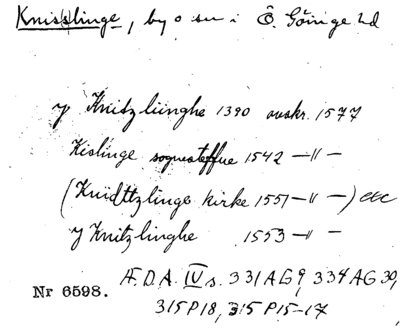 Knisslinge, by o sn i Ö. Göinge hd
y Knitzliinghe 1390 avskr. 1577
Kislinge sognesteffue 1542 —〃—
(Knidttzlinge kirke 1551 —〃—) etc
y Knitzlinghe 1553 —〃—
Æ.D.A. IV s. 331 AG 9, 334 AG 30,
Nr 6598.
315 P 18, 315 P 15-17